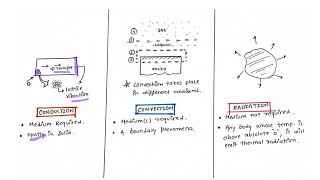 Lattice
vibration
CONDUCTION
Medium Required.
Mostly in Solid.
GAS
LIQUID
SOLID
Convection takes place
in different mediums.
CONVECTION
Medium(s) required.
A boundary phenomena.
RADIATION
Medium not required.
Any body whose temp. is
above absolute '0', it will
emit thermal radiation.